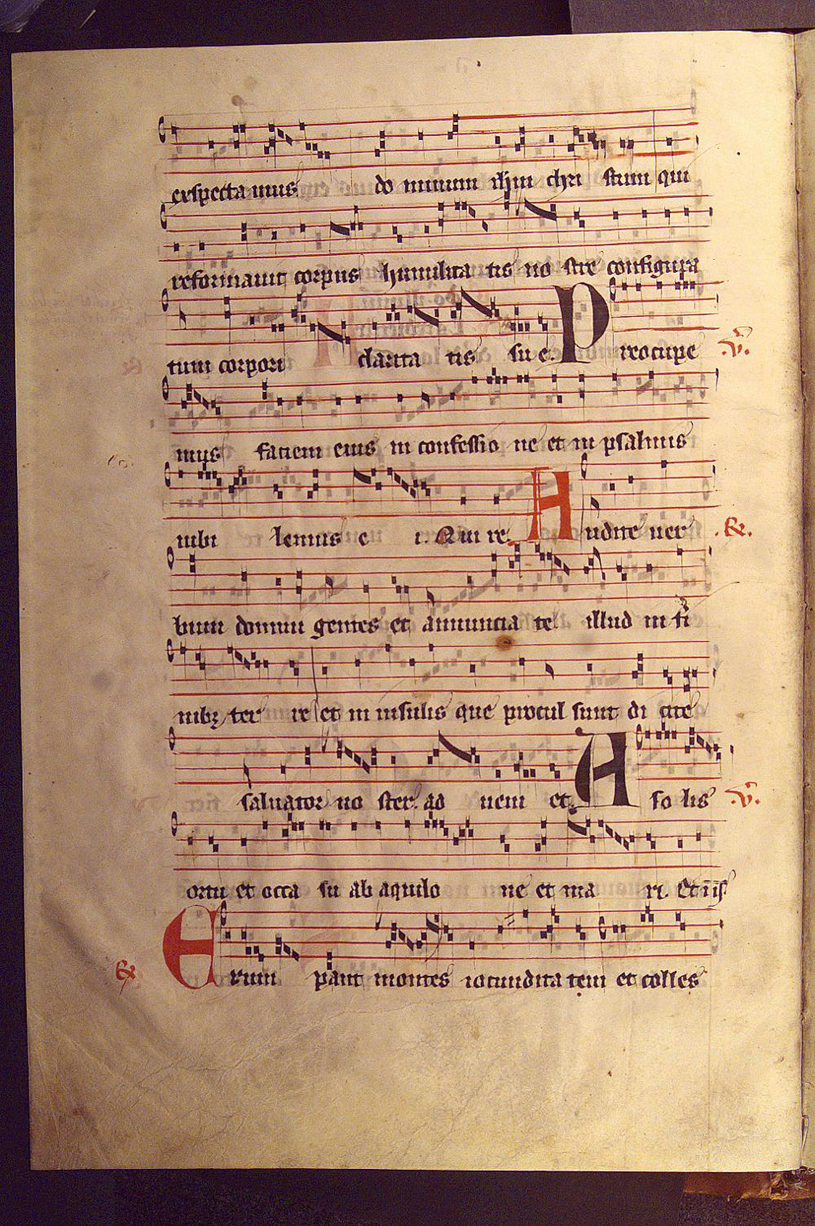 exspecta mus do minum ihm chri stum qui
reformauit corpus humilita tis no stre configura
tum corpori clarita tis su e. Preocupe .V.
mus faciem eius in confessio ne et in psalmis
iubi lemus e i. Qui re. Audite uer .R.
bum domini gentes et annuncia te illud in fi
nibus ter re et in insulis que procul sunt di cite
saluator no ster ad ueni et. A so lis .V.
ortu et occa su ab aquilo ne et ma ri. Et i
R. Erum pant montes iocundita tem et colles